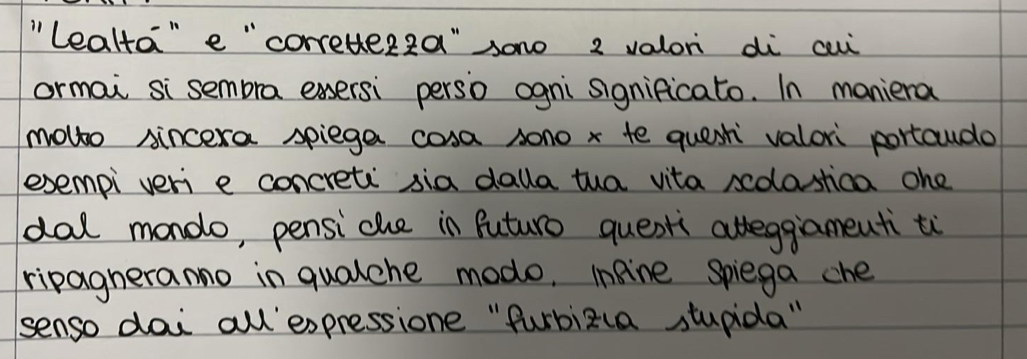 "Lealtá" e "correttezza" sono 2 valori di cui
ormai si sembra essersi perso ogni significato. In maniera
molto sincera spiega cosa sono x te questi valori portando
esempi veri e concreti sia dalla tua vita scolastica che
dal mondo, pensi che in futuro questi atteggiamenti ti
ripagheranno in qualche modo. Infine spiega che
senso dai all'espressione "furbizia stupida"